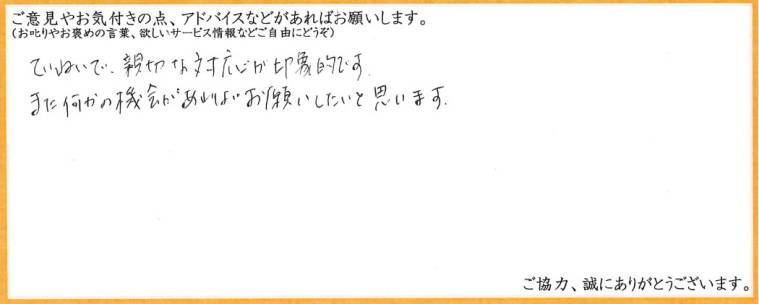 ご意見やお気付きの点、アドバイスなどがあればお願いします。
(お叱りやお褒めの言葉、欲しいサービス情報などご自由にどうぞ)
ていねいで、親切な対応が印象的です。
また何かの機会があればお願いしたいと思います。
ご協力、誠にありがとうございます。